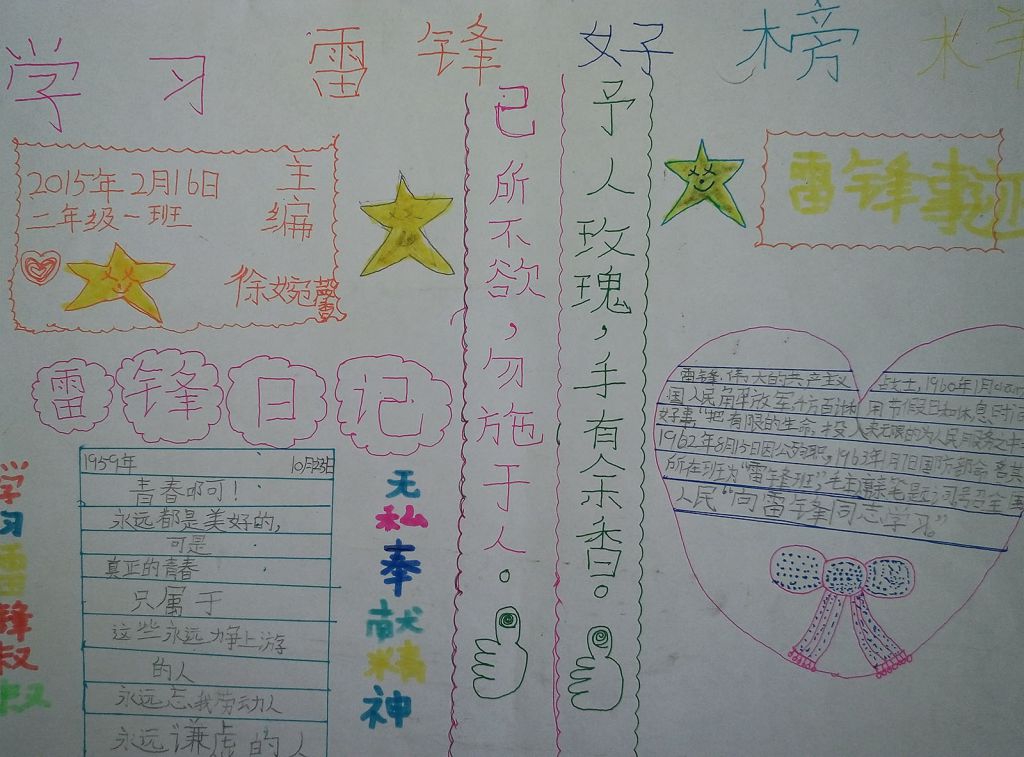 学习雷锋好榜样
2015年2月16日
二年级一班
主编
徐婉馨
己所不欲，勿施于人。
予人玫瑰，手有余香。
雷锋事迹
雷锋日记
1959年 10月25日
青春啊！
永远都是美好的，
可是
真正的青春
只属于
这些永远力争上游
的人
永远忘我劳动人
永远谦虚的人
学习雷锋叔叔
无私奉献精神
雷锋，伟大的共产主义战士，1960年1月
国人民解放军，千方百计利用节假日和休息时间
好事“把有限的生命投入到无限的为人民服务之中
1962年8月15日因公殉职，1963年1月7日国防部命
所在班为“雷锋班”毛主席亲笔题词号召全国
人民“向雷锋同志学习”